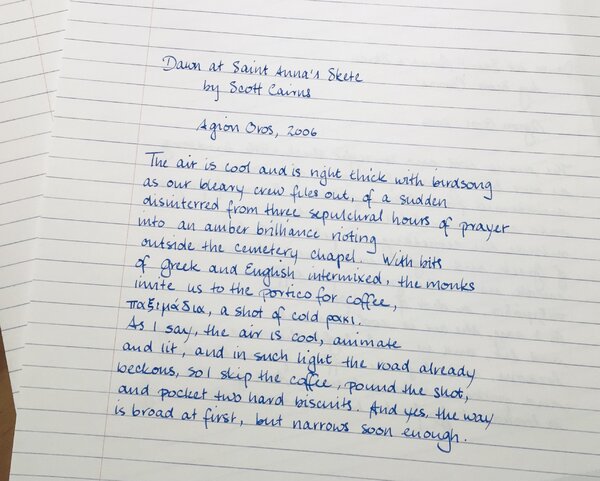 Dawn at Saint Anna's Skete
by Scott Cairns
Agion Oros, 2006
The air is cool and is right thick with birdsong
as our bleary crew files out, of a sudden
disinterred from three sepulchral hours of prayer
into an amber brilliance rioting
outside the cemetery chapel. With bits
of Greek and English intermixed, the monks
invite us to the portico for coffee,
παξιμάδια, a shot of cold ρακι.
As I say, the air is cool, animate
and lit, and in such light the road already
beckons, so I skip the coffee, pound the shot,
and pocket two hard biscuits. And yes, the way
is broad at first, but narrows soon enough.